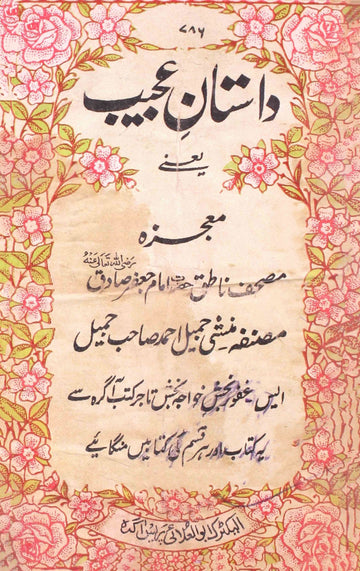 ۷۸۶
داستانِ عجیب
یعنے
معجزہ
مصحف ناطق حضرت امام جعفر صادق رضی اللہ تعالیٰ عنہ
مصنفہ منشی جمیل احمد صاحب جمیل
ایس غفور بخش خواجہ بخش تاجر کتب آگرہ سے
یہ کتاب اور ہر قسم کی کتابیں منگائیے
الیکٹرک ابوالعلائی پریس آگرہ